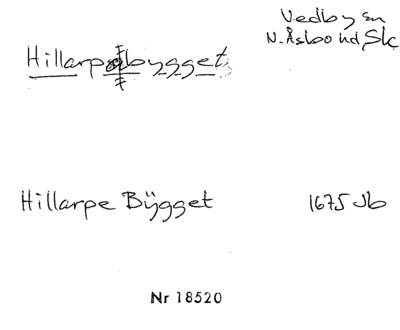 Vedby sn
N. Åsbo hd Sk
Hillarpabygget
Hillarpe Bÿgget 1675 Jb
Nr 18520